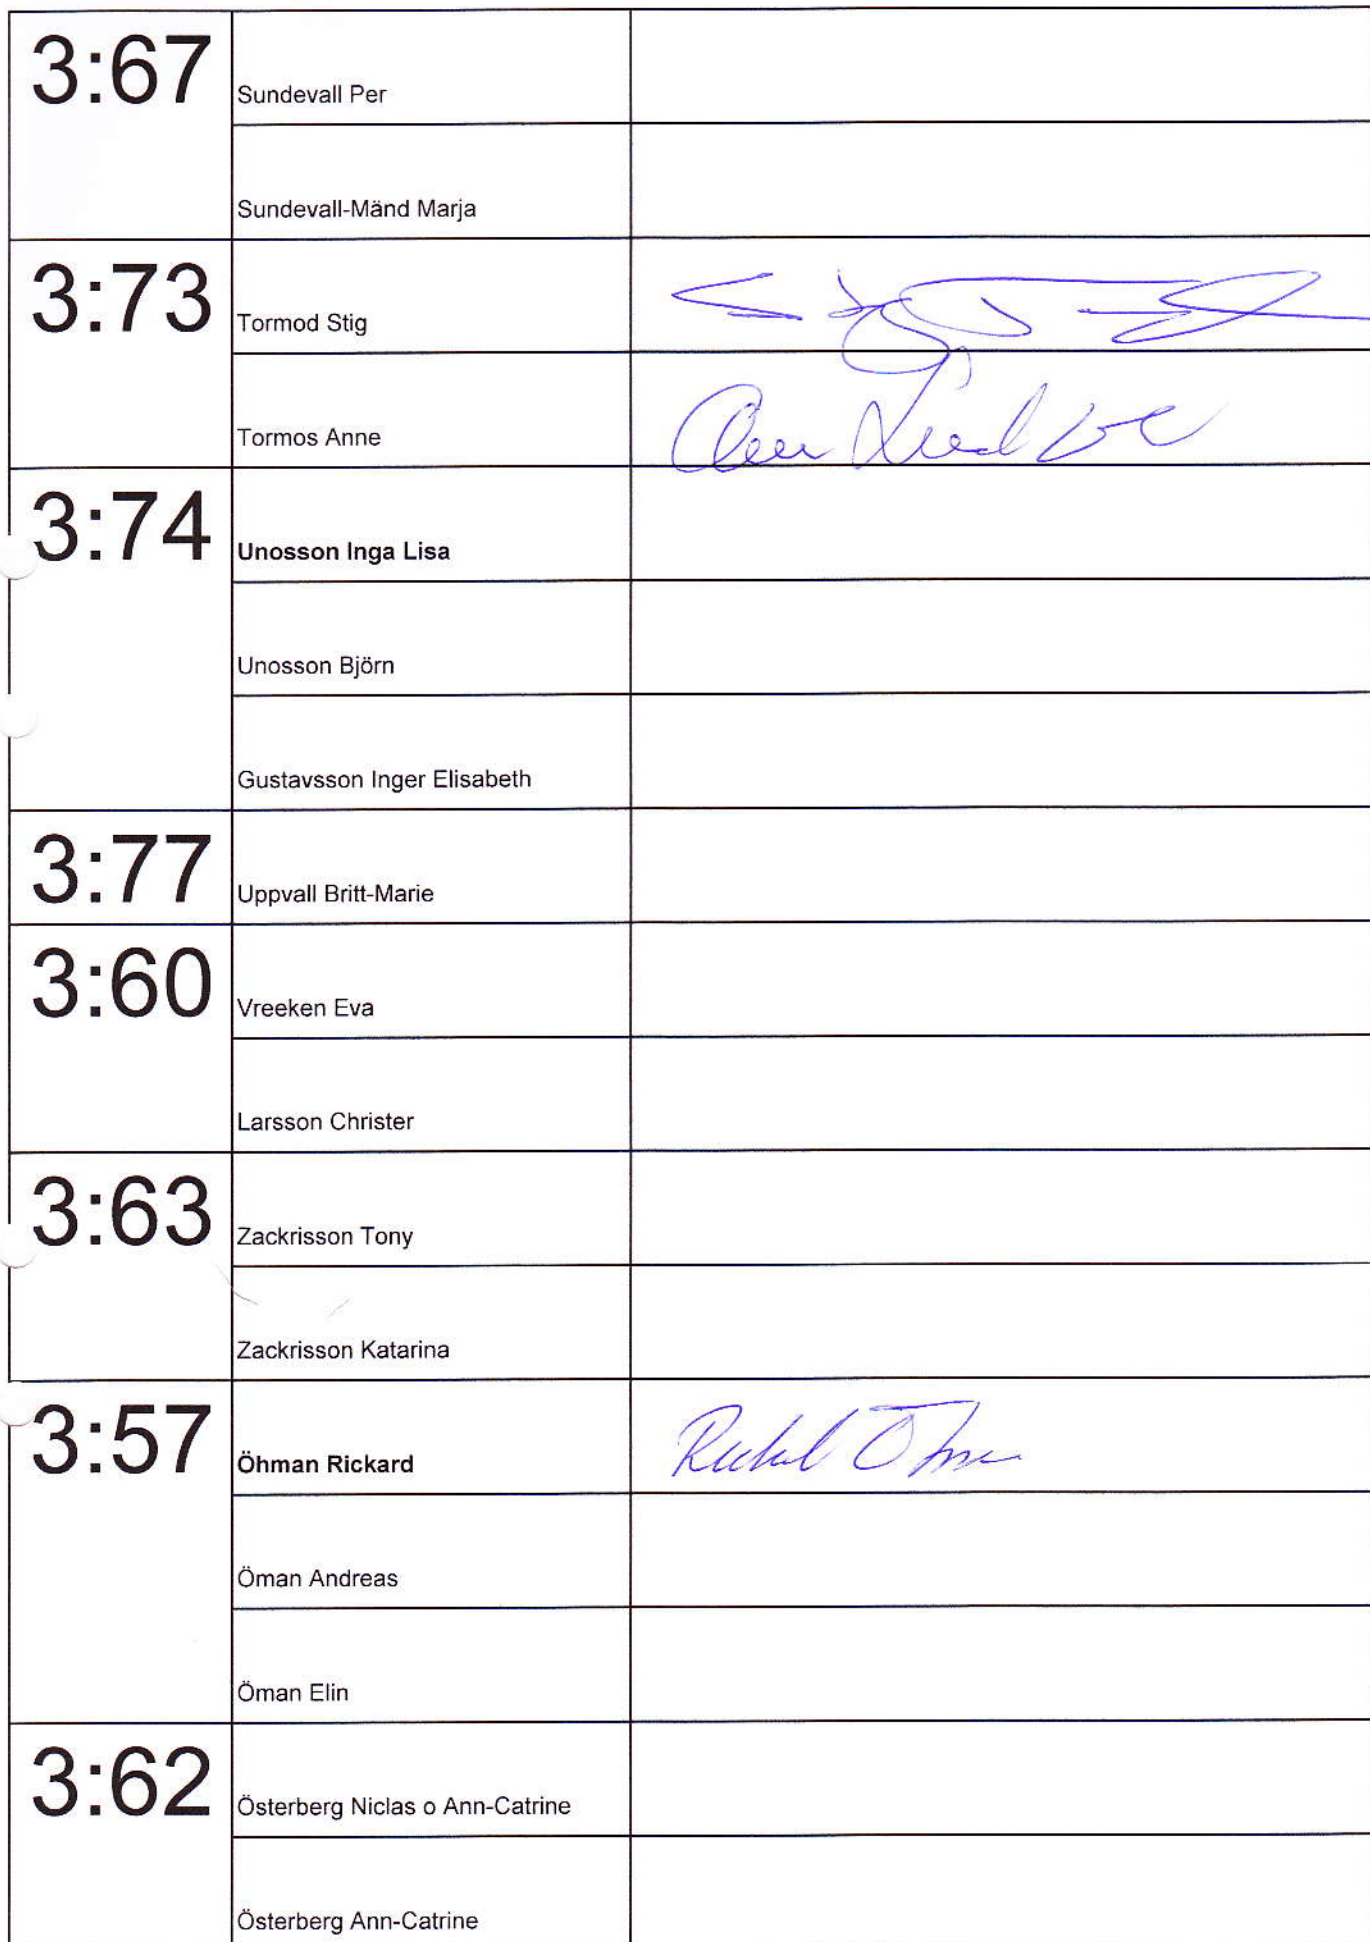 3:67 Sundevall Per
Sundevall-Mänd Marja
3:73 Tormod Stig
Tormos Anne
3:74 Unosson Inga Lisa
Unosson Björn
Gustavsson Inger Elisabeth
3:77 Uppvall Britt-Marie
3:60 Vreeken Eva
Larsson Christer
3:63 Zackrisson Tony
Zackrisson Katarina
3:57 Öhman Rickard Rickard Öhman
Öman Andreas
Öman Elin
3:62 Österberg Niclas o Ann-Catrine
Österberg Ann-Catrine